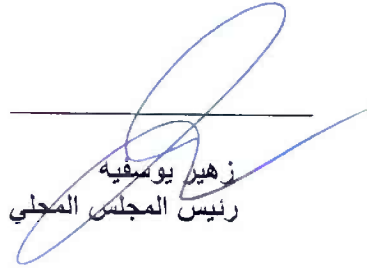 زهير يوسفيه
رئيس المجلس المحلي